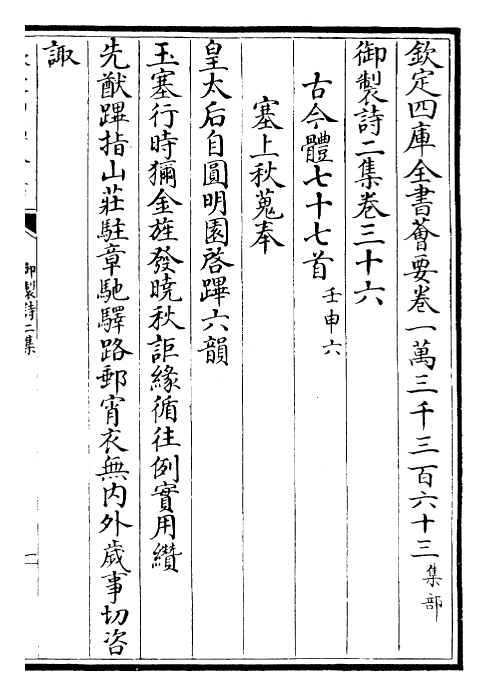 欽定四庫全書薈要卷一萬三千三百六十三 集部
御製詩二集卷三十六
古今體七十七首 壬申六
塞上秋蒐奉
皇太后自圓明園啓蹕六韻
玉塞行時獮金旌發曉秋詎緣循往例實用纘
先猷蹕指山莊駐章馳驛路郵宵衣無内外歲事切咨
諏
御製詩二集
一